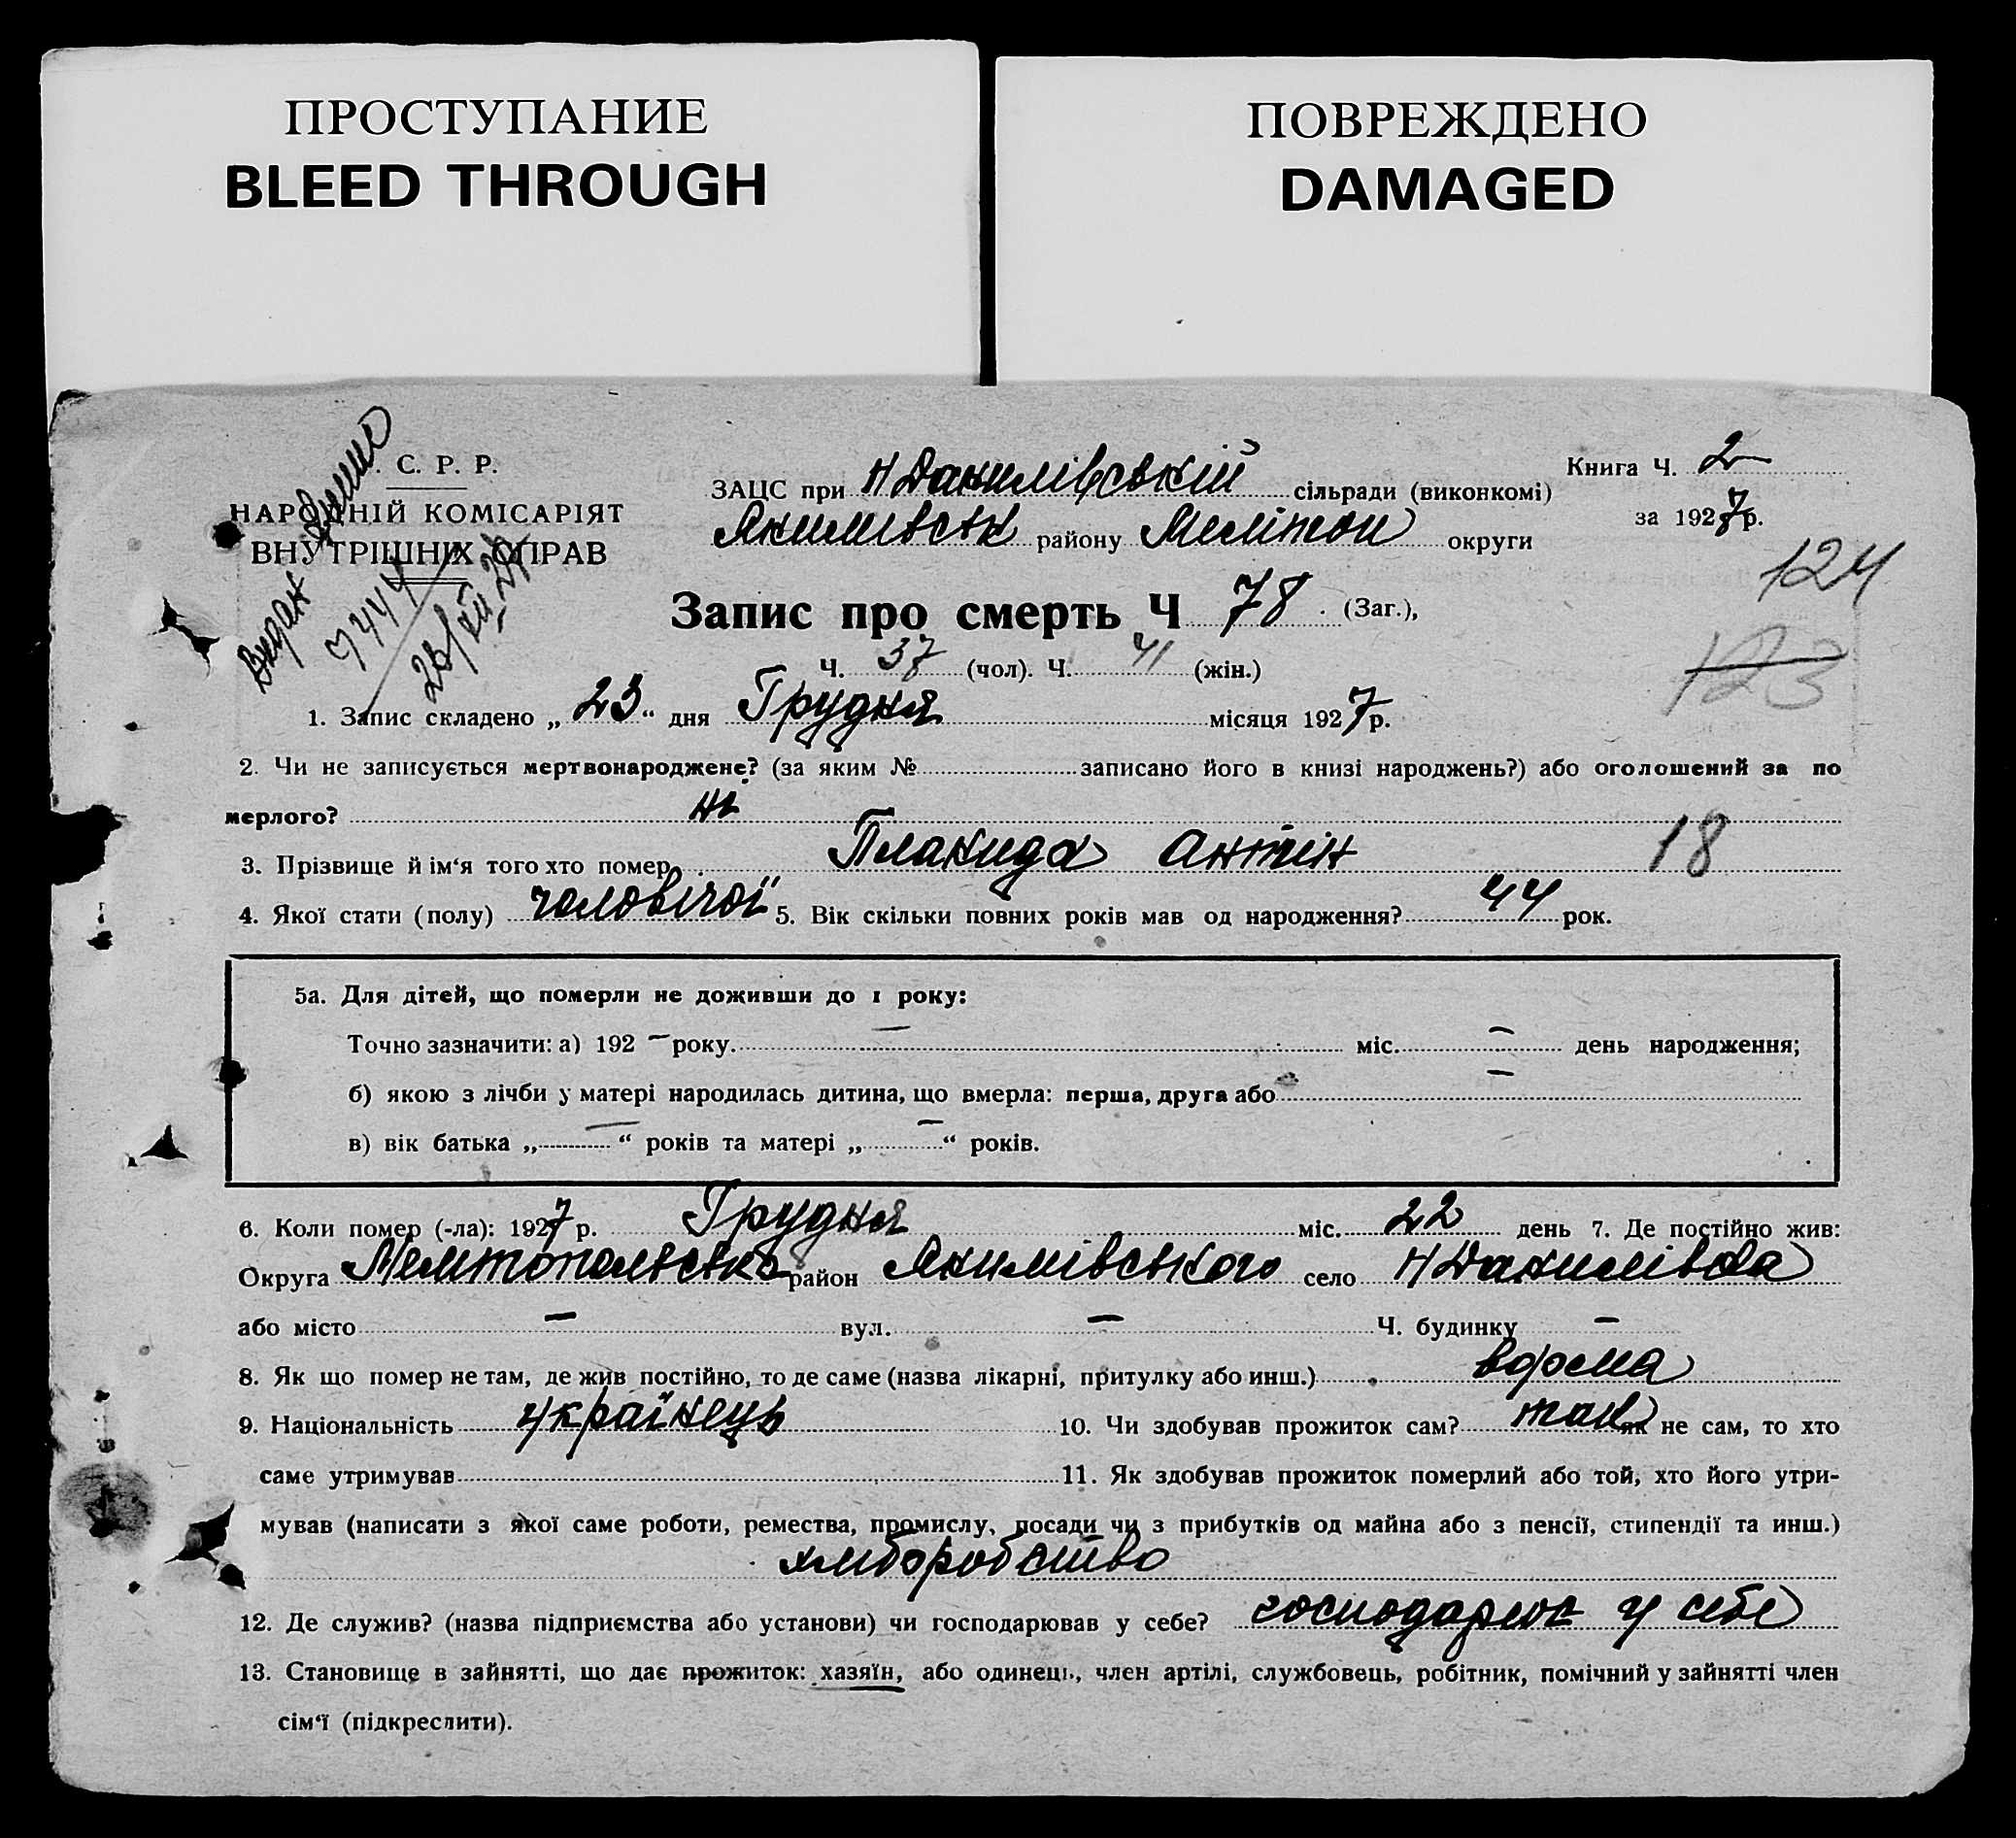 ПРОСТУПАНИЕ
BLEED THROUGH
ПОВРЕЖДЕНО
DAMAGED
. С. Р. Р.
НАРОДНІЙ КОМІСАРІЯТ
ВНУТРІШНІХ СПРАВ
Видан
7444
ЗАЦС при Н Данилівській сільради (виконкомі)
Якимівськ району Мелітоп округи
Книга Ч. 2
за 1927 р.
124
123
Запис про смерть Ч 78 (Заг.),
Ч. 37 (чол). Ч. 41 (жін.)
1. Запис складено „ 23 “ дня Грудня місяця 1927 р.
2. Чи не записується мертвонароджене? (за яким № записано його в книзі народжень?) або оголошений за по
мерлого? ні
3. Прізвище й ім‘я того хто помер Плакида Антін 18
4. Якої стати (полу) чоловічої 5. Вік скільки повних років мав од народження? 44 рок.
5а. Для дітей, що померли не доживши до 1 року:
Точно зазначити: а) 192 — року. — міс. — день народження;
б) якою з лічби у матері народилась дитина, що вмерла: перша, друга або —
в) вік батька „ — “ років та матері „ — “ років.
6. Коли помер (-ла): 1927 р. Грудня міс. 22 день 7. Де постійно жив:
Округа Мелітопольська район Якимівського село Н Данилівка
або місто — вул. — Ч. будинку —
8. Як що помер не там, де жив постійно, то де саме (назва лікарні, притулку або инш.) вдома
9. Національність українець 10. Чи здобував прожиток сам? так як не сам, то хто
саме утримував 11. Як здобував прожиток померлий або той, хто його утри-
мував (написати з якої саме роботи, ремества, промислу, посади чи з прибутків од майна або з пенсії, стипендії та инш.)
хліборобство
12. Де служив? (назва підприємства або установи) чи господарював у себе? господарює у себе
13. Становище в зайнятті, що дає прожиток: хазяїн, або одинець, член артілі, службовець, робітник, помічний у зайнятті член
сім‘ї (підкреслити).